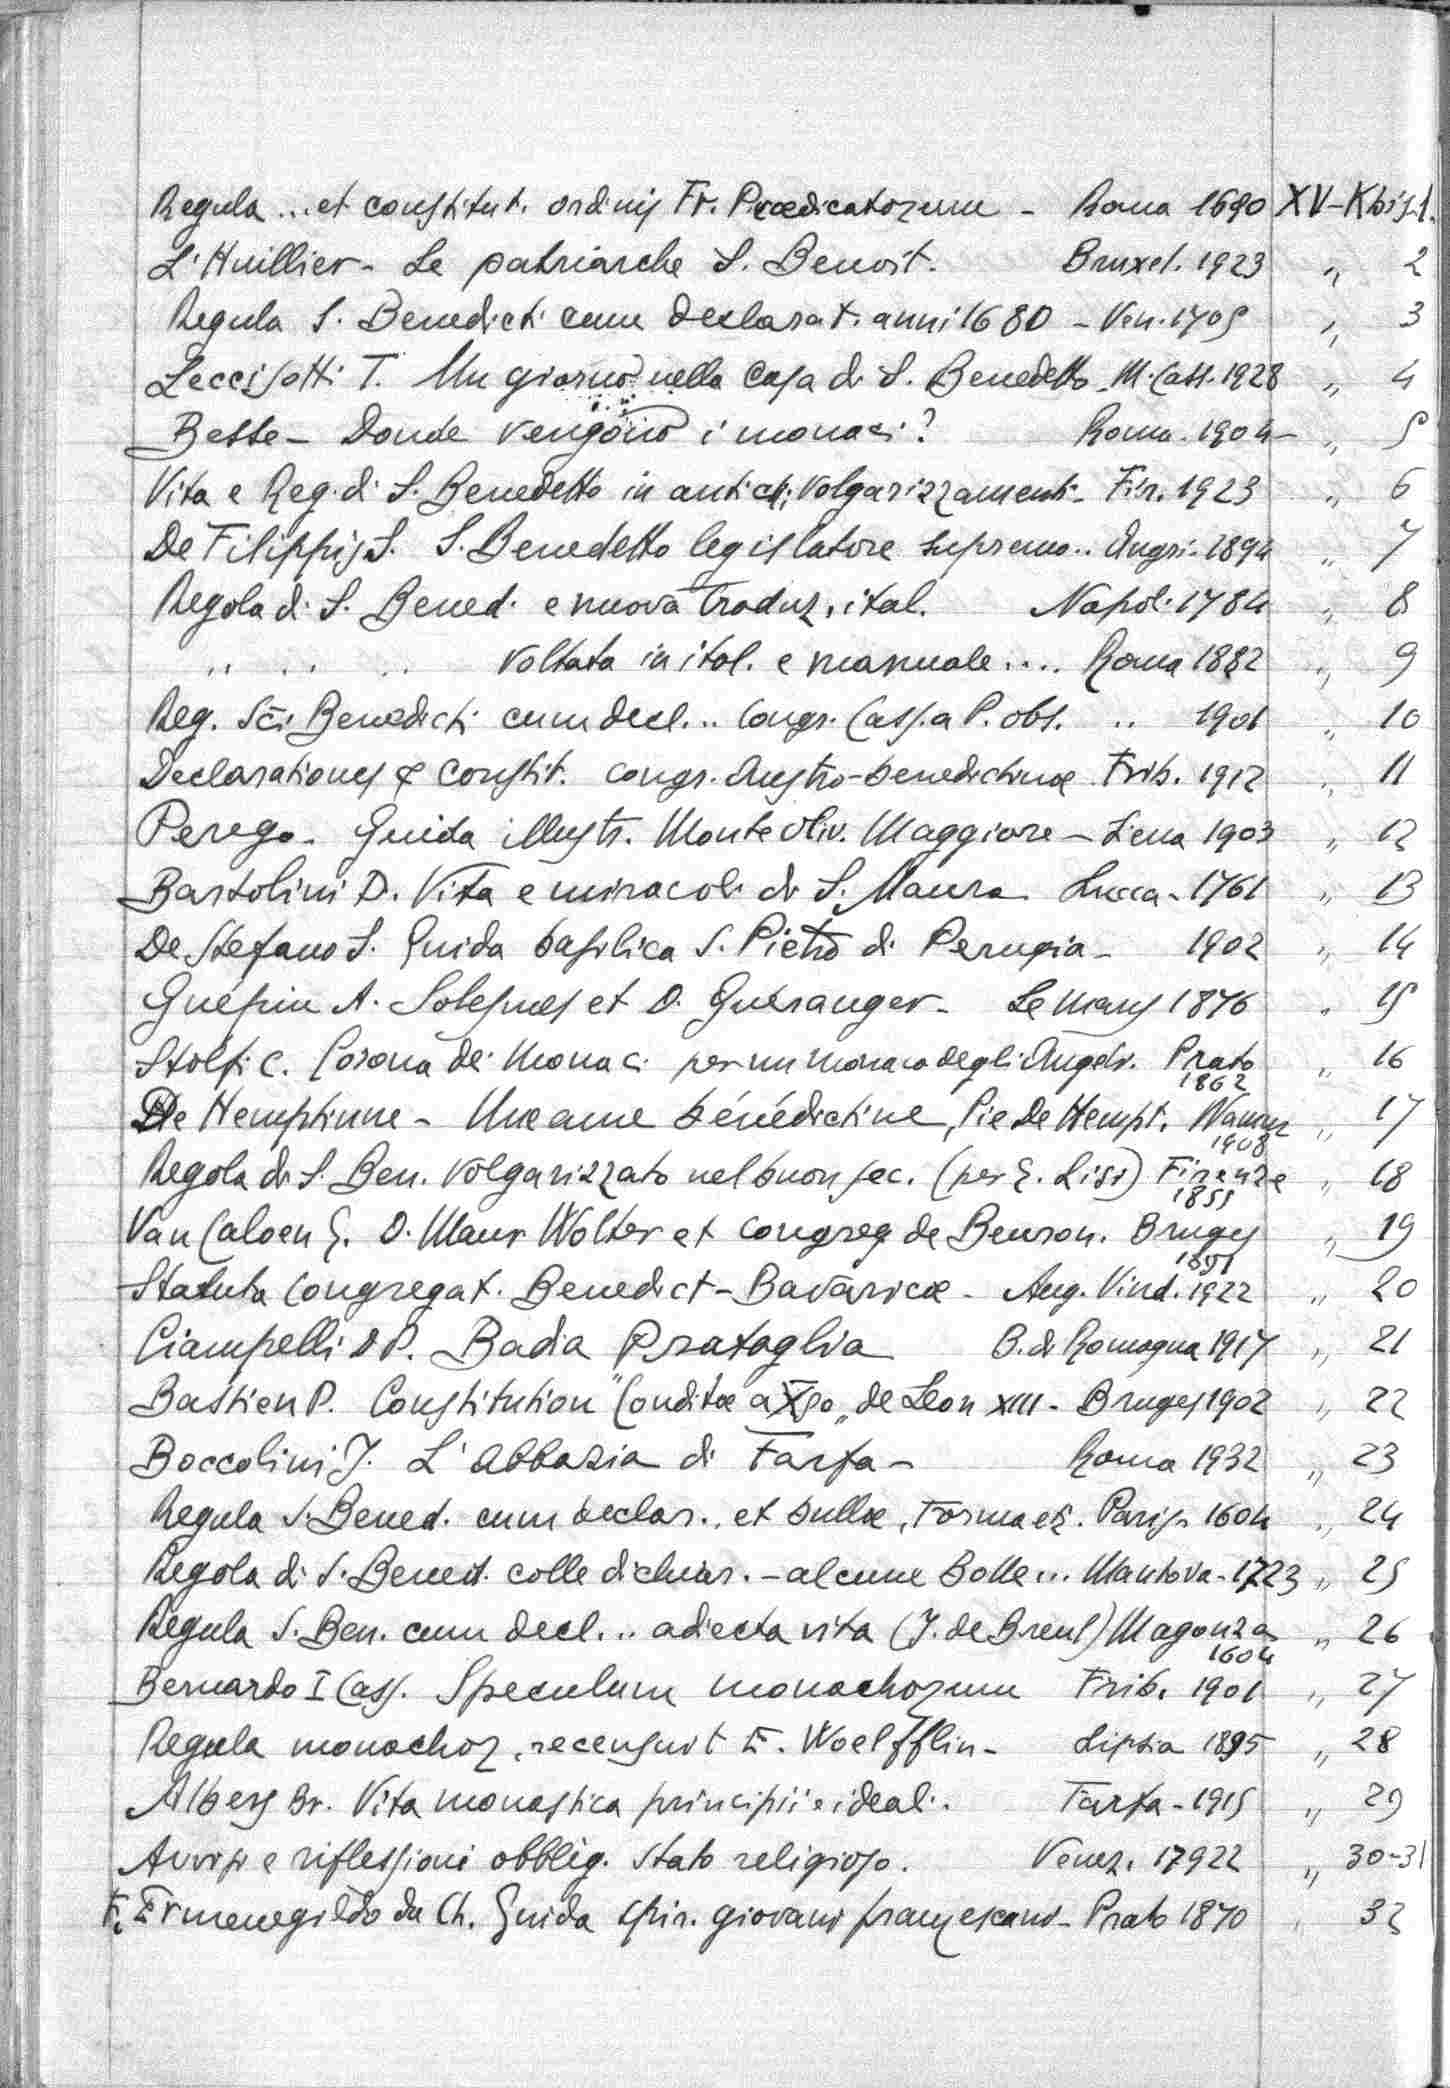 Regula ... et constitut. ordinis Fr. Praedicatorum - Roma 1690 XV-Kbis-1.
L'Huillier - Le patriarche S. Benoit. Bruxel. 1923 " 2
Regula S. Benedicti cum declarat. anni 1680 - Ven. 1705 " 3
Leccisotti T. Un giorno nella Casa di S. Benedetto - M. Cass. 1928 " 4
Besse - Donde vengono i monaci? Roma. 1904 - " 5
Vita e Reg. di S. Benedetto in antichi volgarizzamenti - Fir. 1923 " 6
De Filippis S. S. Benedetto legislatore supremo.. Angri - 1894 " 7
Regola di S. Bened. e nuova traduz. ital. Napoli 1784 " 8
" " " voltata in ital. e manuale .... Roma 1882 " 9
Reg. Sci Benedicti cum decl... Congr. Cass. a P. obs. .. 1901 " 10
Declarationes & constit. congr. Austro-benedictinae Frib. 1912 " 11
Perego - Guida illustr. Monte Oliv. Maggiore - Siena 1903 " 12
Bartolini D. Vita e miracoli di S. Mauro Lucca - 1761 " 13
De Stefano S. Guida basilica S. Pietro di Perugia - 1902 " 14
Guépin A. Solesmes et D. Guéranger - Le Mans 1876 " 15
Stolfi C. Corona dei Monaci per un monaco degli Angeli. Prato 1862 " 16
De Hemptinne - Une ame bénédictine, Pie De Hempt. Namur 1908 " 17
Regola di S. Ben. volgarizzato nel buon sec. (per E. Lisi) Firenze 1855 " 18
Van Caloen G. D. Maur Wolter et congreg de Beuron. Bruges 1891 " 19
Statuta Congregat. Benedict-Bavaricae - Aug. Vind. 1922 " 20
Ciampelli D P. Badia Prataglia B. di Romagna 1917 " 21
Bastien P. Constitution "Conditae a Xso" de Leon XIII - Bruges 1902 " 22
Boccolini J. L'abbazia di Farfa - Roma 1932 " 23
Regula S. Bened. cum declar., et bullae, Forma et. Paris 1604 " 24
Regola di S. Bened. colle dichiar. - alcune Bolle... Mantova - 1723 " 25
Regula S. Ben. cum decl... adiecta vita (J. de Breul) Magonza 1604 " 26
Bernardo I Cass. Speculum monachorum Frib. 1901 " 27
Regula monachor, recensuit E. Woelfflin - Lipsia 1895 " 28
Albers Br. Vita monastica principii e ideali. Farfa - 1915 " 29
Avvisi e riflessioni obblig. stato religioso. Venez. 17922 " 30-31
F. Ermenegildo da Ch. Guida spir. giovani francescani - Prato 1870 " 32